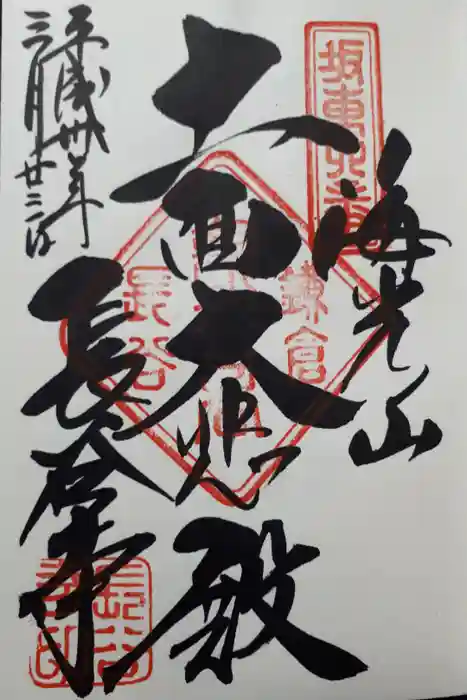 海光山
坂東四番
十一面大悲殿
鎌倉
長谷
長谷寺
長谷寺印
平成卅年
三月廿三日